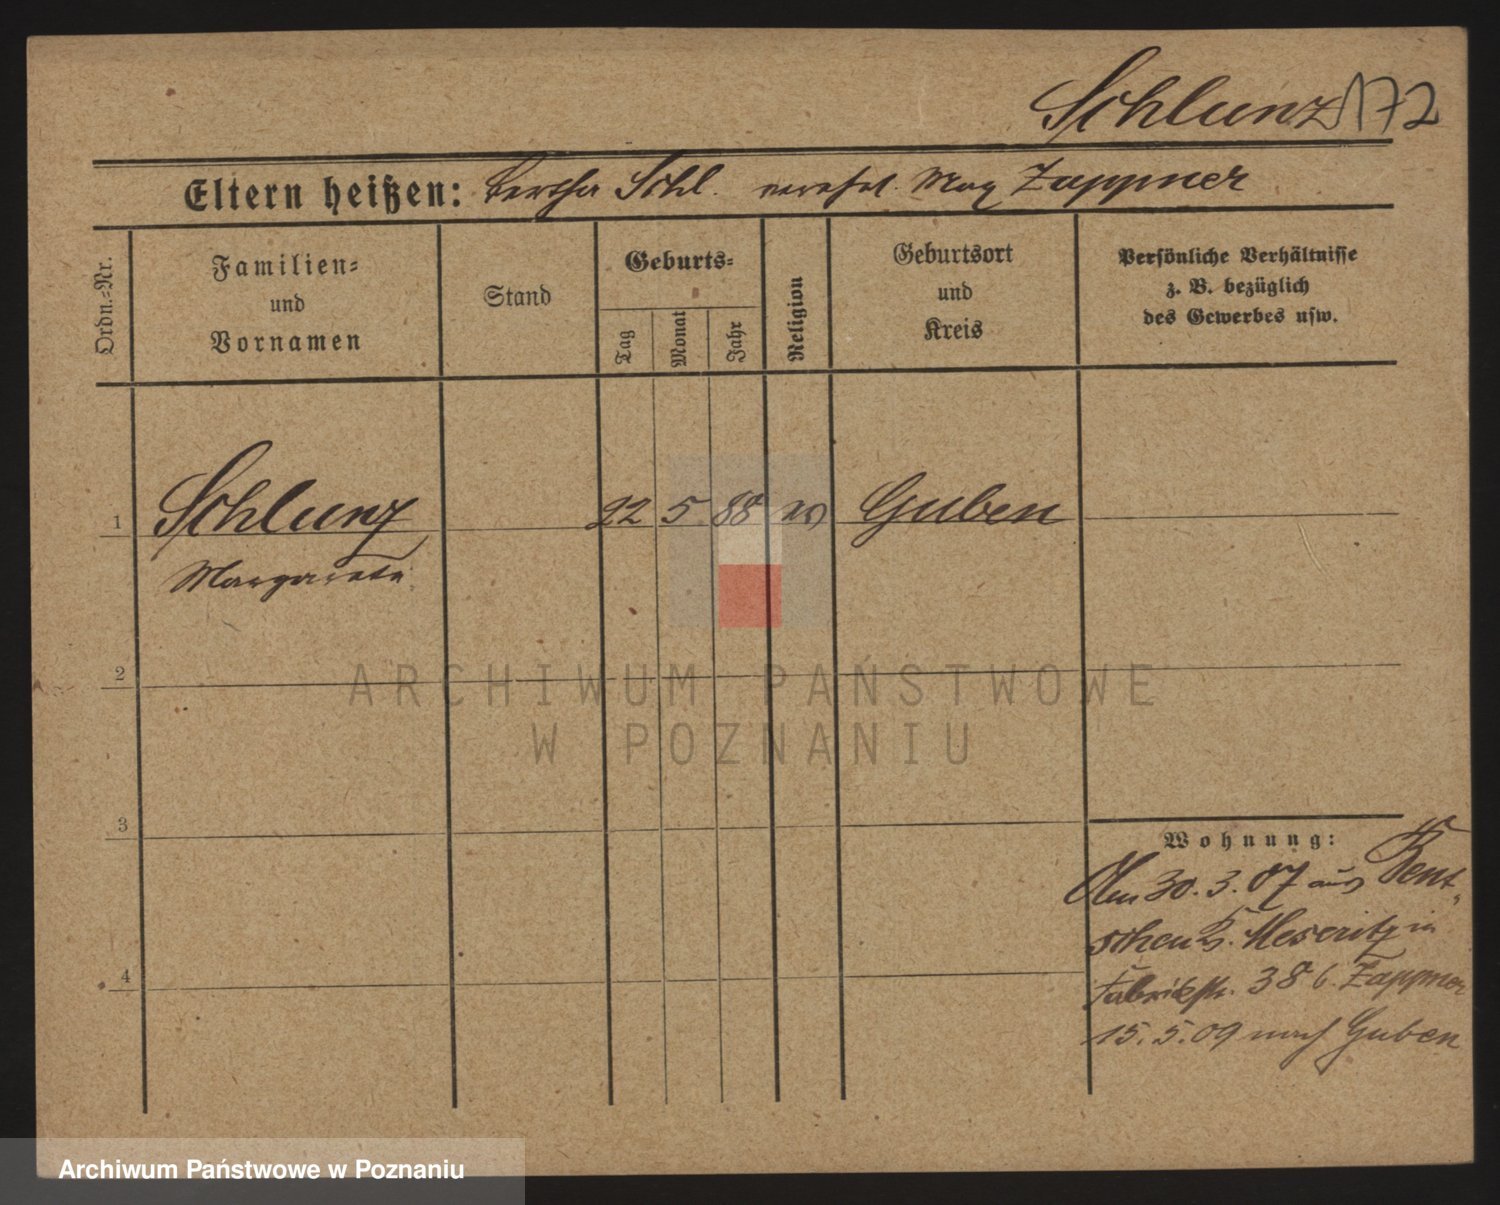 Schlunz 172
Eltern heißen: Bertha Schl. verehel. Max Zappner
Ordn.=Nr.
Familien=
und
Vornamen
Stand
Geburts=
Tag
Monat
Jahr
Religion
Geburtsort
und
Kreis
Persönliche Verhältnisse
z. B. bezüglich
des Gewerbes usw.
1 Schlunz 22 5 88 ev Guben
Margarete
2
ARCHIWUM PAŃSTWOWE
W POZNANIU
3
Wohnung:
Am 30.3.07 aus Bent-
schen Kr. Meseritz in
Fabrikstr. 38 b. Zappner
15.5.09 nach Guben
4
Archiwum Państwowe w Poznaniu